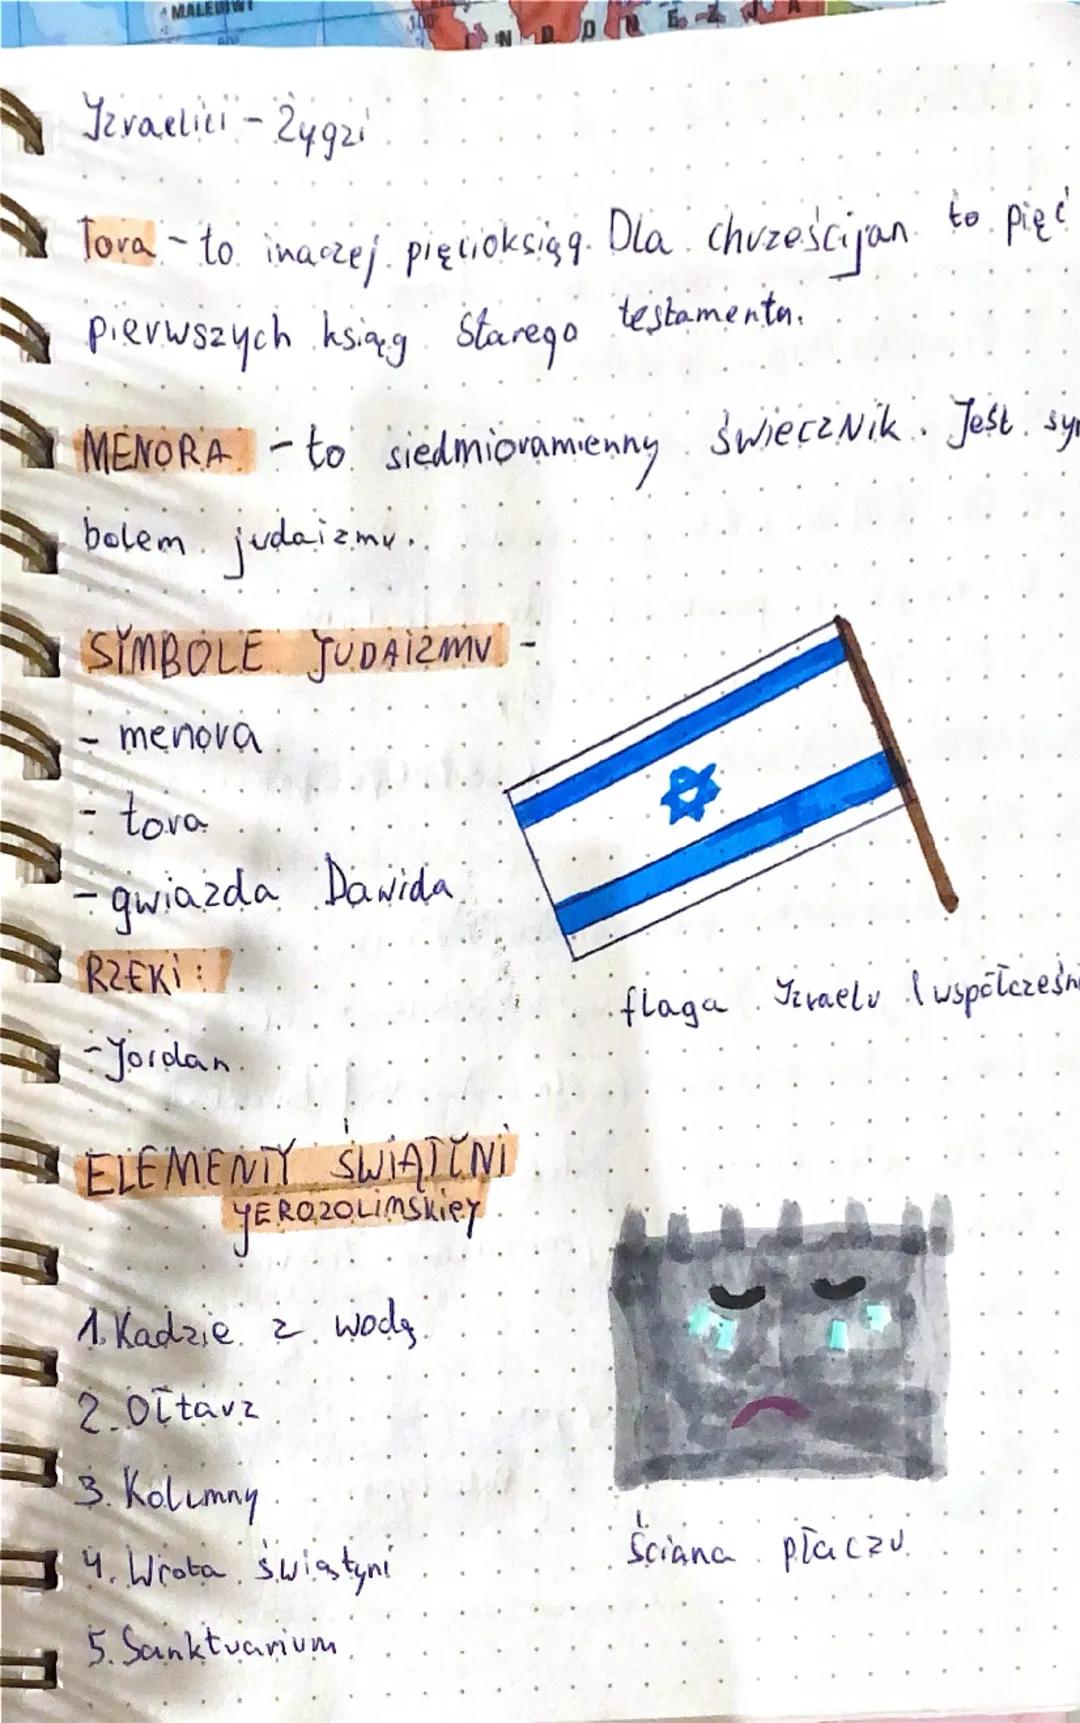 MALEDIWY
100°
I N D O N E Z J A
Izraelici - Żydzi
Tora - to inaczej pięcioksiąg. Dla chrześcijan to pięć
pierwszych ksiąg Starego testamentu.
MENORA - to siedmioramienny świecznik. Jest sym
bolem judaizmu.
SYMBOLE JUDAIZMU -
- menora
- tora
- gwiazda Dawida
RZEKI:
- Jordan
flaga Izraelu (współcześni
ELEMENTY ŚWIĄTYNI
JEROZOLIMSKIEJ
1. Kadzie z wodą
2. Ołtarz
3. Kolumny
4. Wrota świątyni
5. Sanktuarium
Ściana płaczu